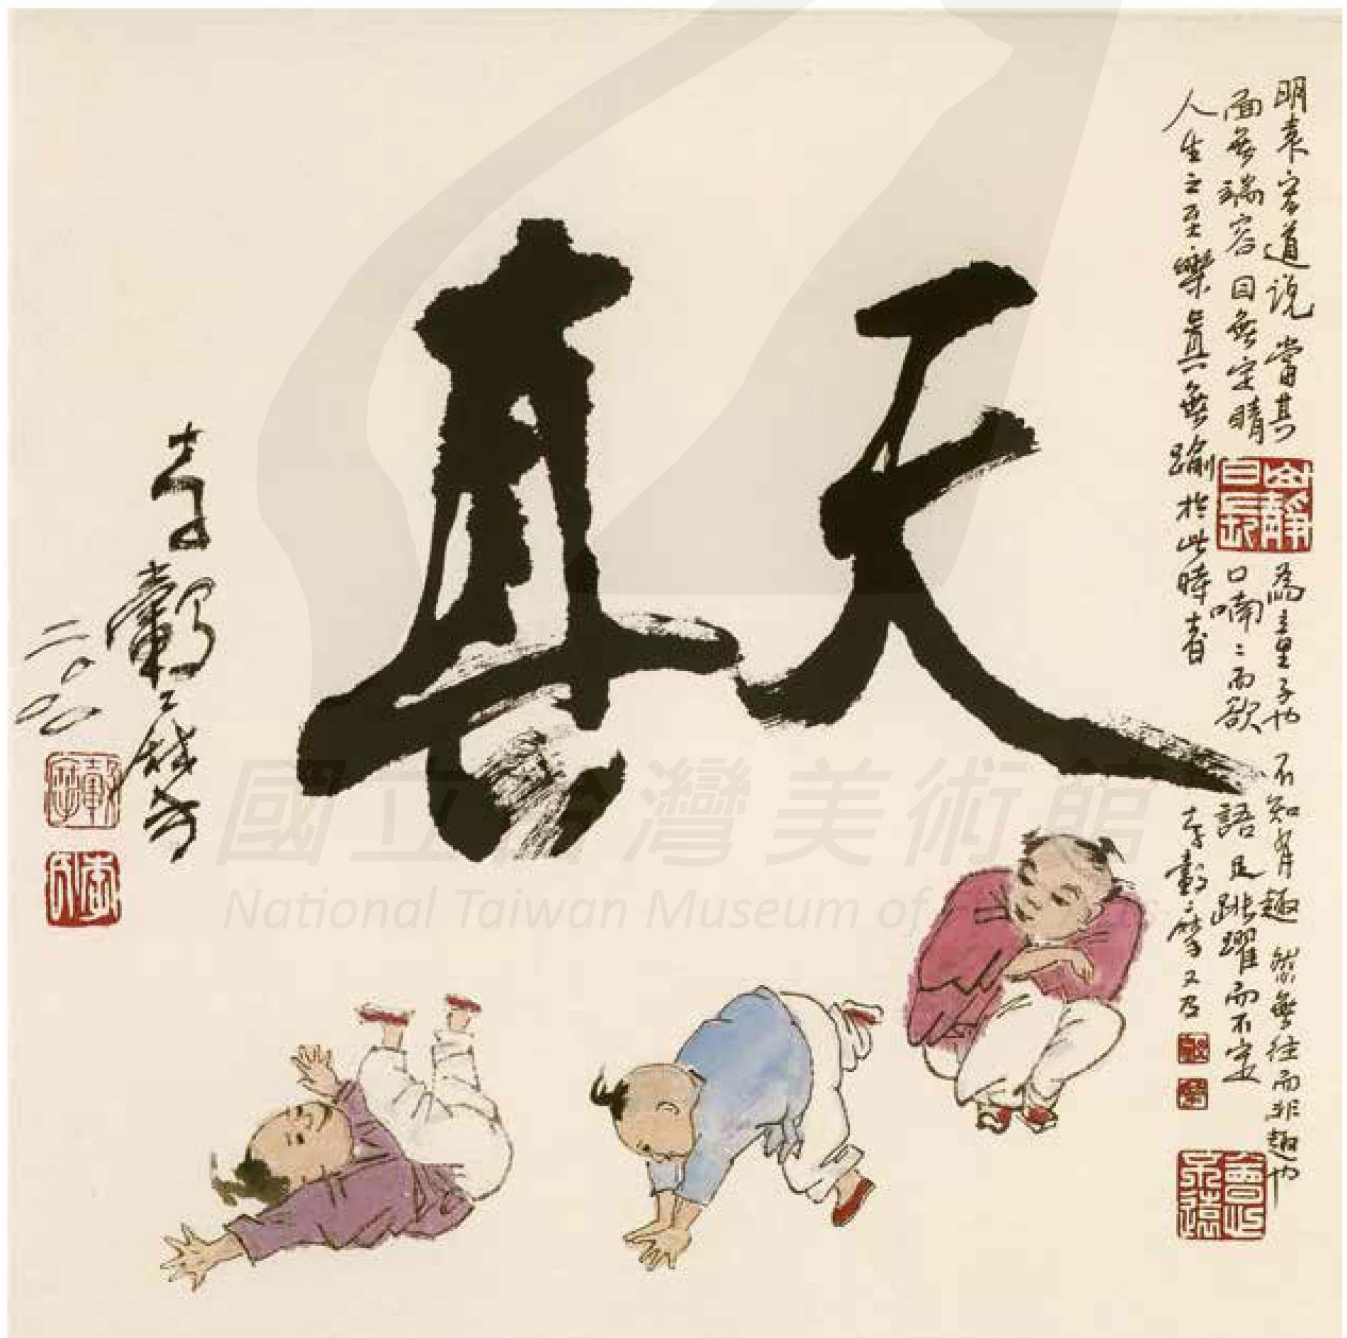 天真
明袁宏道說 當其為童子也 不知有趣 然無往而非趣也
面無端容 目無定睛 口喃喃而欲語 足跳躍而不定
人生之至樂 真無踰於此時者
李轂摩又及
李轂摩
二〇〇〇
山靜日長
李
國立台灣美術館
National Taiwan Museum of Fine Arts